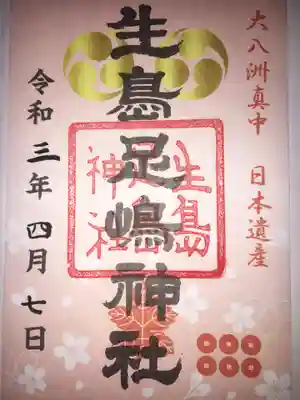 大八洲真中 日本遺産
生島足嶋神社
生島足島神社
令和三年四月七日